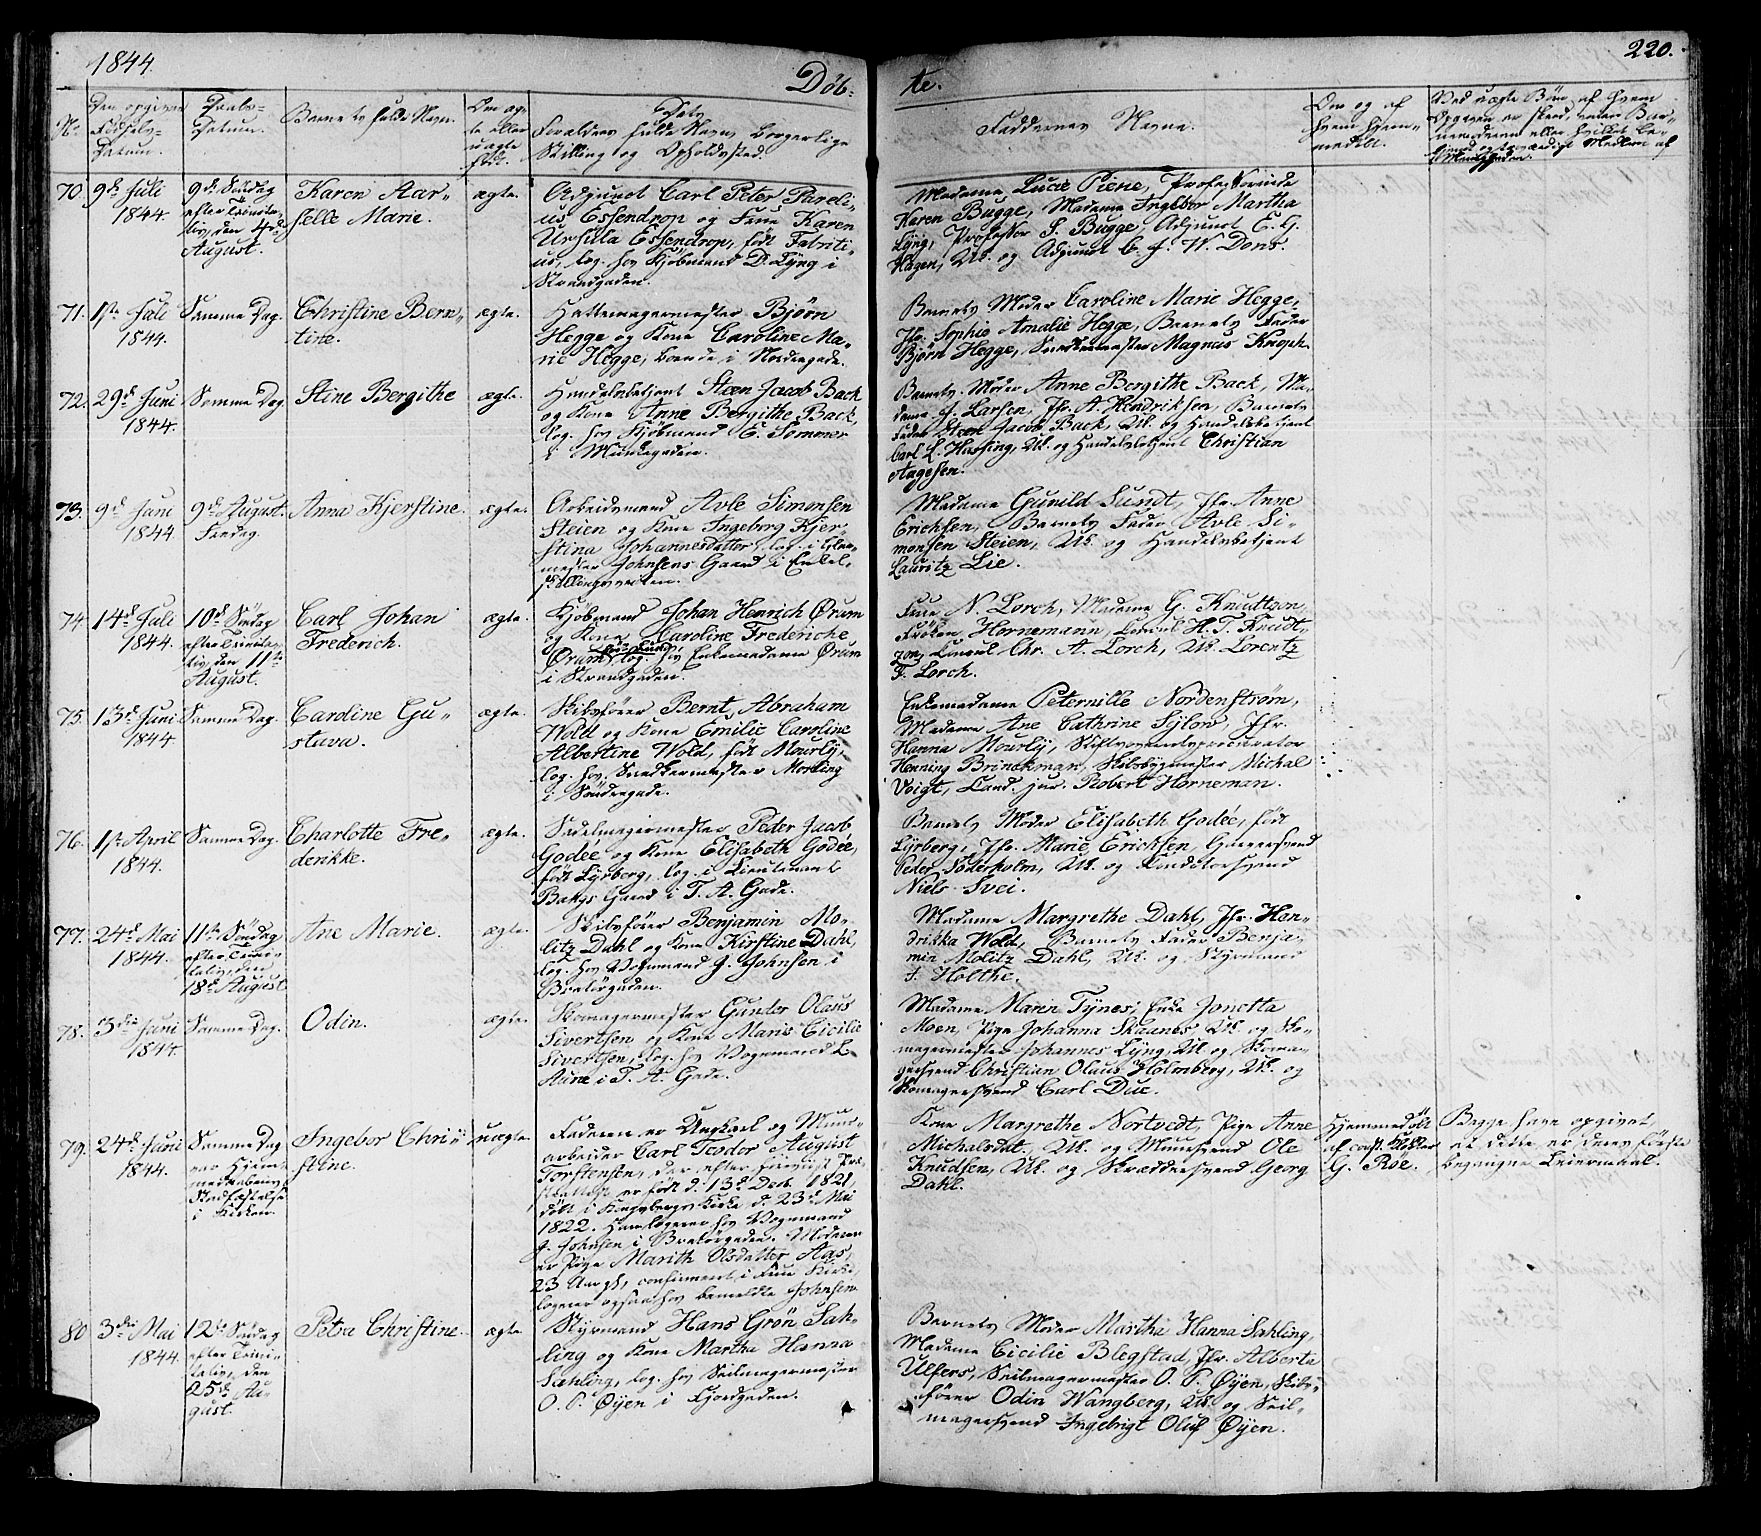 1844.
220.
Døb-
te.
No.
Den opgivne
Fødsels-
Datum.
Daabs-
Datum.
Barnets fulde Navn.
Om æg-
te eller
uægte
født.
Dets
Forældres fulde Navn, borgerlige
Stilling og Opholdssted.
Faddernes Navne.
Om og af
hvem hjem-
medøbt.
70.
9de Juli
1844.
9de Søndag
efter Trinita-
tis, den 4de
August.
Karen Aar-
selle Marie.
ægte.
Adjunct Carl Peter Pareli-
us Essendrop og Frue Karen
Ursula Essendrop, født Fabriti-
us, log. hos Kjøbmand D. Lÿng i
Strandgaden.
Madame Lucie Piene, Professorinde
Karen Bugge, Madame Ingebor Martha
Lÿng, Professor S. Bugge, Adjunct E. G.
Hagen, Uk. og Adjunct C. J. W. Dons.
71.
1ste Juli
1844.
Samme Dag.
Christine Bern-
tine.
ægte.
Hattemagermester Bjørn
Hegge og Kone Caroline Ma-
rie Hegge, boende i Nordregade.
Barnets Moder Caroline Marie Hegge,
Jfr. Sophie Amalie Hegge, Barnets Fader
Bjørn Hegge, Snedkermester Magnus Knoph.
72.
29de Juni
1844.
Samme Dag.
Stine Bergithe
ægte.
Handelsbetjent Steen Jacob Back
og Kone Anne Bergithe Back,
log. hos Kjøbmand E. Sommer
i Munkegaden.
Barnets Moder Anne Bergithe Back, Ma-
dame J. Larsen, Jfr. A. Hendriksen, Barnets
Fader Steen Jacob Back, Uk. og Handelsbetjent
Carl L. Hassing, Uk. og Handelsbetjent Christian
Aagesen.
73.
9de Juni
1844.
9de August.
Fredag.
Anna Kjerstine.
ægte.
Arbeidsmand Avle Simonsen
Steien og Kone Ingeborg Kjer-
stina Johannesdatter, log. i
mester Johnsens Gaard i Enkel-
skillingsveiten.
Madame Gunild Sundt, Jfr. Anne
Erichsen, Barnets Fader Avle Si-
monsen Steien, Uk. og Handelsbetjent
Lauritz Lie.
74.
14de Juli
1844.
10de Søndag
efter Trinita-
tis, den 11te
August.
Carl Johan
Frederich.
ægte.
Kjøbmand Johan Henrich Ørum
og Kone Caroline Frederiche
Ørum log. hos Enkemadame Ørum
i Strandgaden.
Frue N. Lorch, Madame G. Knudtzon,
Frøken Hornemann, Consul H. T. Knudt-
zon, Consul Chr. A. Lorch, Uk. Lorentz
T. Lorch.
75.
13de Juni
1844.
Samme Dag.
Caroline Gu-
stava.
ægte.
Skibsfører Bernt Abraham
Wold og Kone Emilie Caroline
Albertine Wold, født Mourlÿ,
log. hos Snedkermester Morling
i Søndregade.
Enkemadame Peternille Nordenstrøm,
Madame Ane Cathrine Sÿlow, Jfr.
Hanna Mourlÿ, Stiftsoverretsprocurator
Henning Brinckman, Skibsbygmester Michal
Voigt, Cand. jur. Robert Horneman.
76.
1ste April
1844.
Samme Dag.
Charlotte Fre-
derikke.
ægte.
Sadelmagermester Peder Jacob
Godée og Kone Elisabeth Godée,
født Lÿrberg, log. i Lieutenant
Bangs Gaard i T. A. Gade.
Barnets Moder Elisabeth Godée, født
Lÿrberg, Jfr. Marie Erichsen, Garversvend
Peder Söderholm, Uk. og Konditorsvend
Niels Svei.
77.
24de Mai
1844.
11te Søndag
efter Trini-
tatis, den
18de August
Ane Marie.
ægte.
Skibsfører Benjamin Mo-
litz Dahl og Kone Kirstine Dahl,
log. hos Vognmand J. Johnsen i
Bratørgaden.
Madame Margrethe Dahl, Jfr. Han-
drikka Wold, Barnets Fader Benja-
min Molitz Dahl, Uk. og Styrmand
J. Holthe.
78.
3die Juni
1844.
Samme Dag.
Odin.
ægte.
Skomagermester Gunder Olaus
Sivertsen og Kone Marie Cicilie
Sivertsen, log. hos Vognmand L.
Aune i T. A. Gade.
Madame Maren Tÿnes, Enke Jonetta
Moen, Pige Johanna Skaanes, Uk. og Sko-
magermester Johannes Lÿng, Uk. og Skoma-
gersvend Christian Olaus Holmberg, Uk. og
Skomagersvend Carl Due.
79.
24de Juni
1844.
Samme Dag
var Hjem-
medaabens
Stadfæstelse
i Kirken.
Ingebor Chri-
stine.
uægte.
Faderen er Ungkarl og Muur-
arbeider Carl Teodor August
Torstensen, der efter foreviist Præ-
steattest er født d. 13de Decb. 1821,
døbt i Kongsbergs Kirke d. 23de Mai
1822. Han logerer hos Vognmand
J. Johnsen i Bratørgaden. Moderen
er Pige Marith Olsdatter Aas,
23 Aar gl., confirmeret i Frue Kirke,
logerer ogsaa hos bemeldte Johnsen.
Kone Margrethe Nortvedt, Pige Anne
Michalsdt. Uk. og Muursvend Ole
Knudsen, Uk. og Skræddersvend Georg
Dahl.
Hjemmedøbt
af const. Klokker
G. Röe.
Begge have opgivet
at dette er deres første
begangne Leiermaal.
80.
3die Mai
1844.
12te Søndag
efter Trini-
tatis, den
25de Au-
gust.
Petra Christine.
ægte.
Styrmand Hans Grön Sah-
ling og Kone Martha Hanna
Sahling, log. hos Seilmagermester
O. P. Øÿen i Fjordgaden.
Barnets Moder Martha Hanna Sahling,
Madame Cicilie Blegstad, Jfr. Alberta
Ulfers, Seilmagermester O. P. Øÿen, Skibs-
fører Odin Wangberg, Uk. og Seil-
magersvend Ingebrigt Oluf Øÿen.